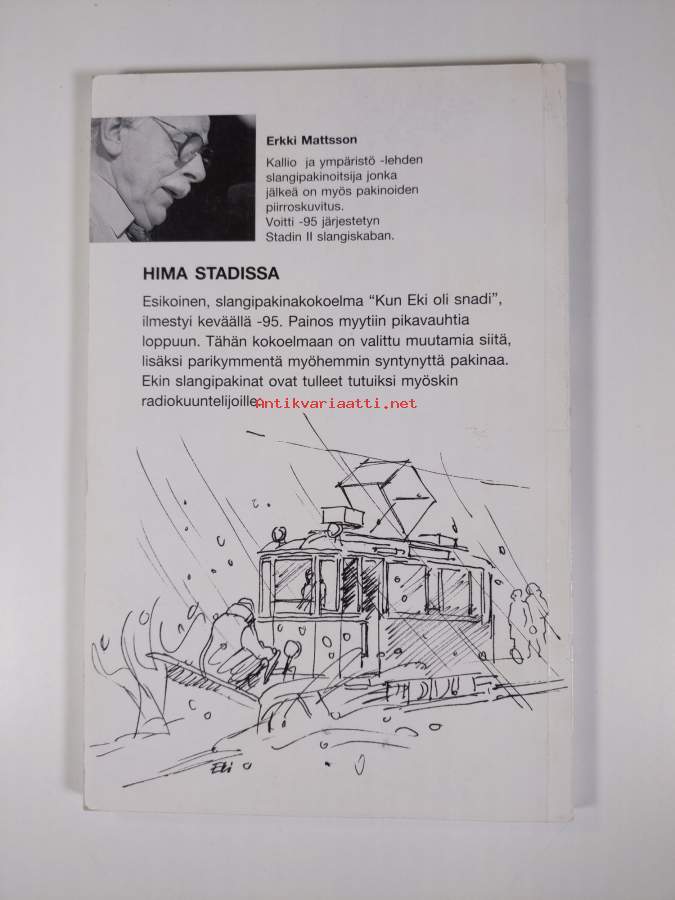 Erkki Mattsson
Kallio ja ympäristö -lehden
slangipakinoitsija jonka
jälkeä on myös pakinoiden
piirroskuvitus.
Voitti -95 järjestetyn
Stadin II slangiskaban.
HIMA STADISSA
Esikoinen, slangipakinakokoelma “Kun Eki oli snadi”,
ilmestyi keväällä -95. Painos myytiin pikavauhtia
loppuun. Tähän kokoelmaan on valittu muutamia siitä,
lisäksi parikymmentä myöhemmin syntynyttä pakinaa.
Ekin slangipakinat ovat tulleet tutuiksi myöskin
radiokuuntelijoille.
Antikvariaatti.net
Eki